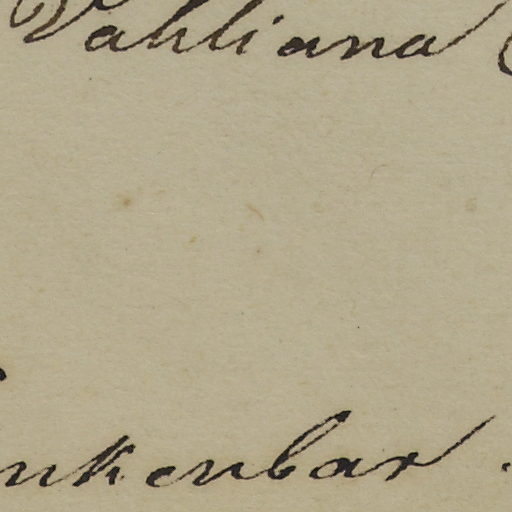 Vahliana
nkenbar.